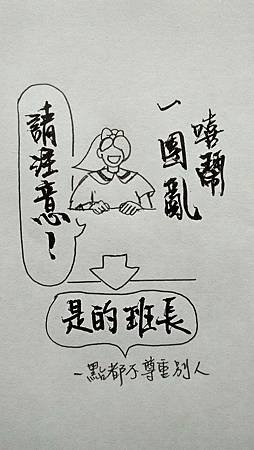 嘻鬧
一團亂
請注意！
是的班長
一點都不尊重別人